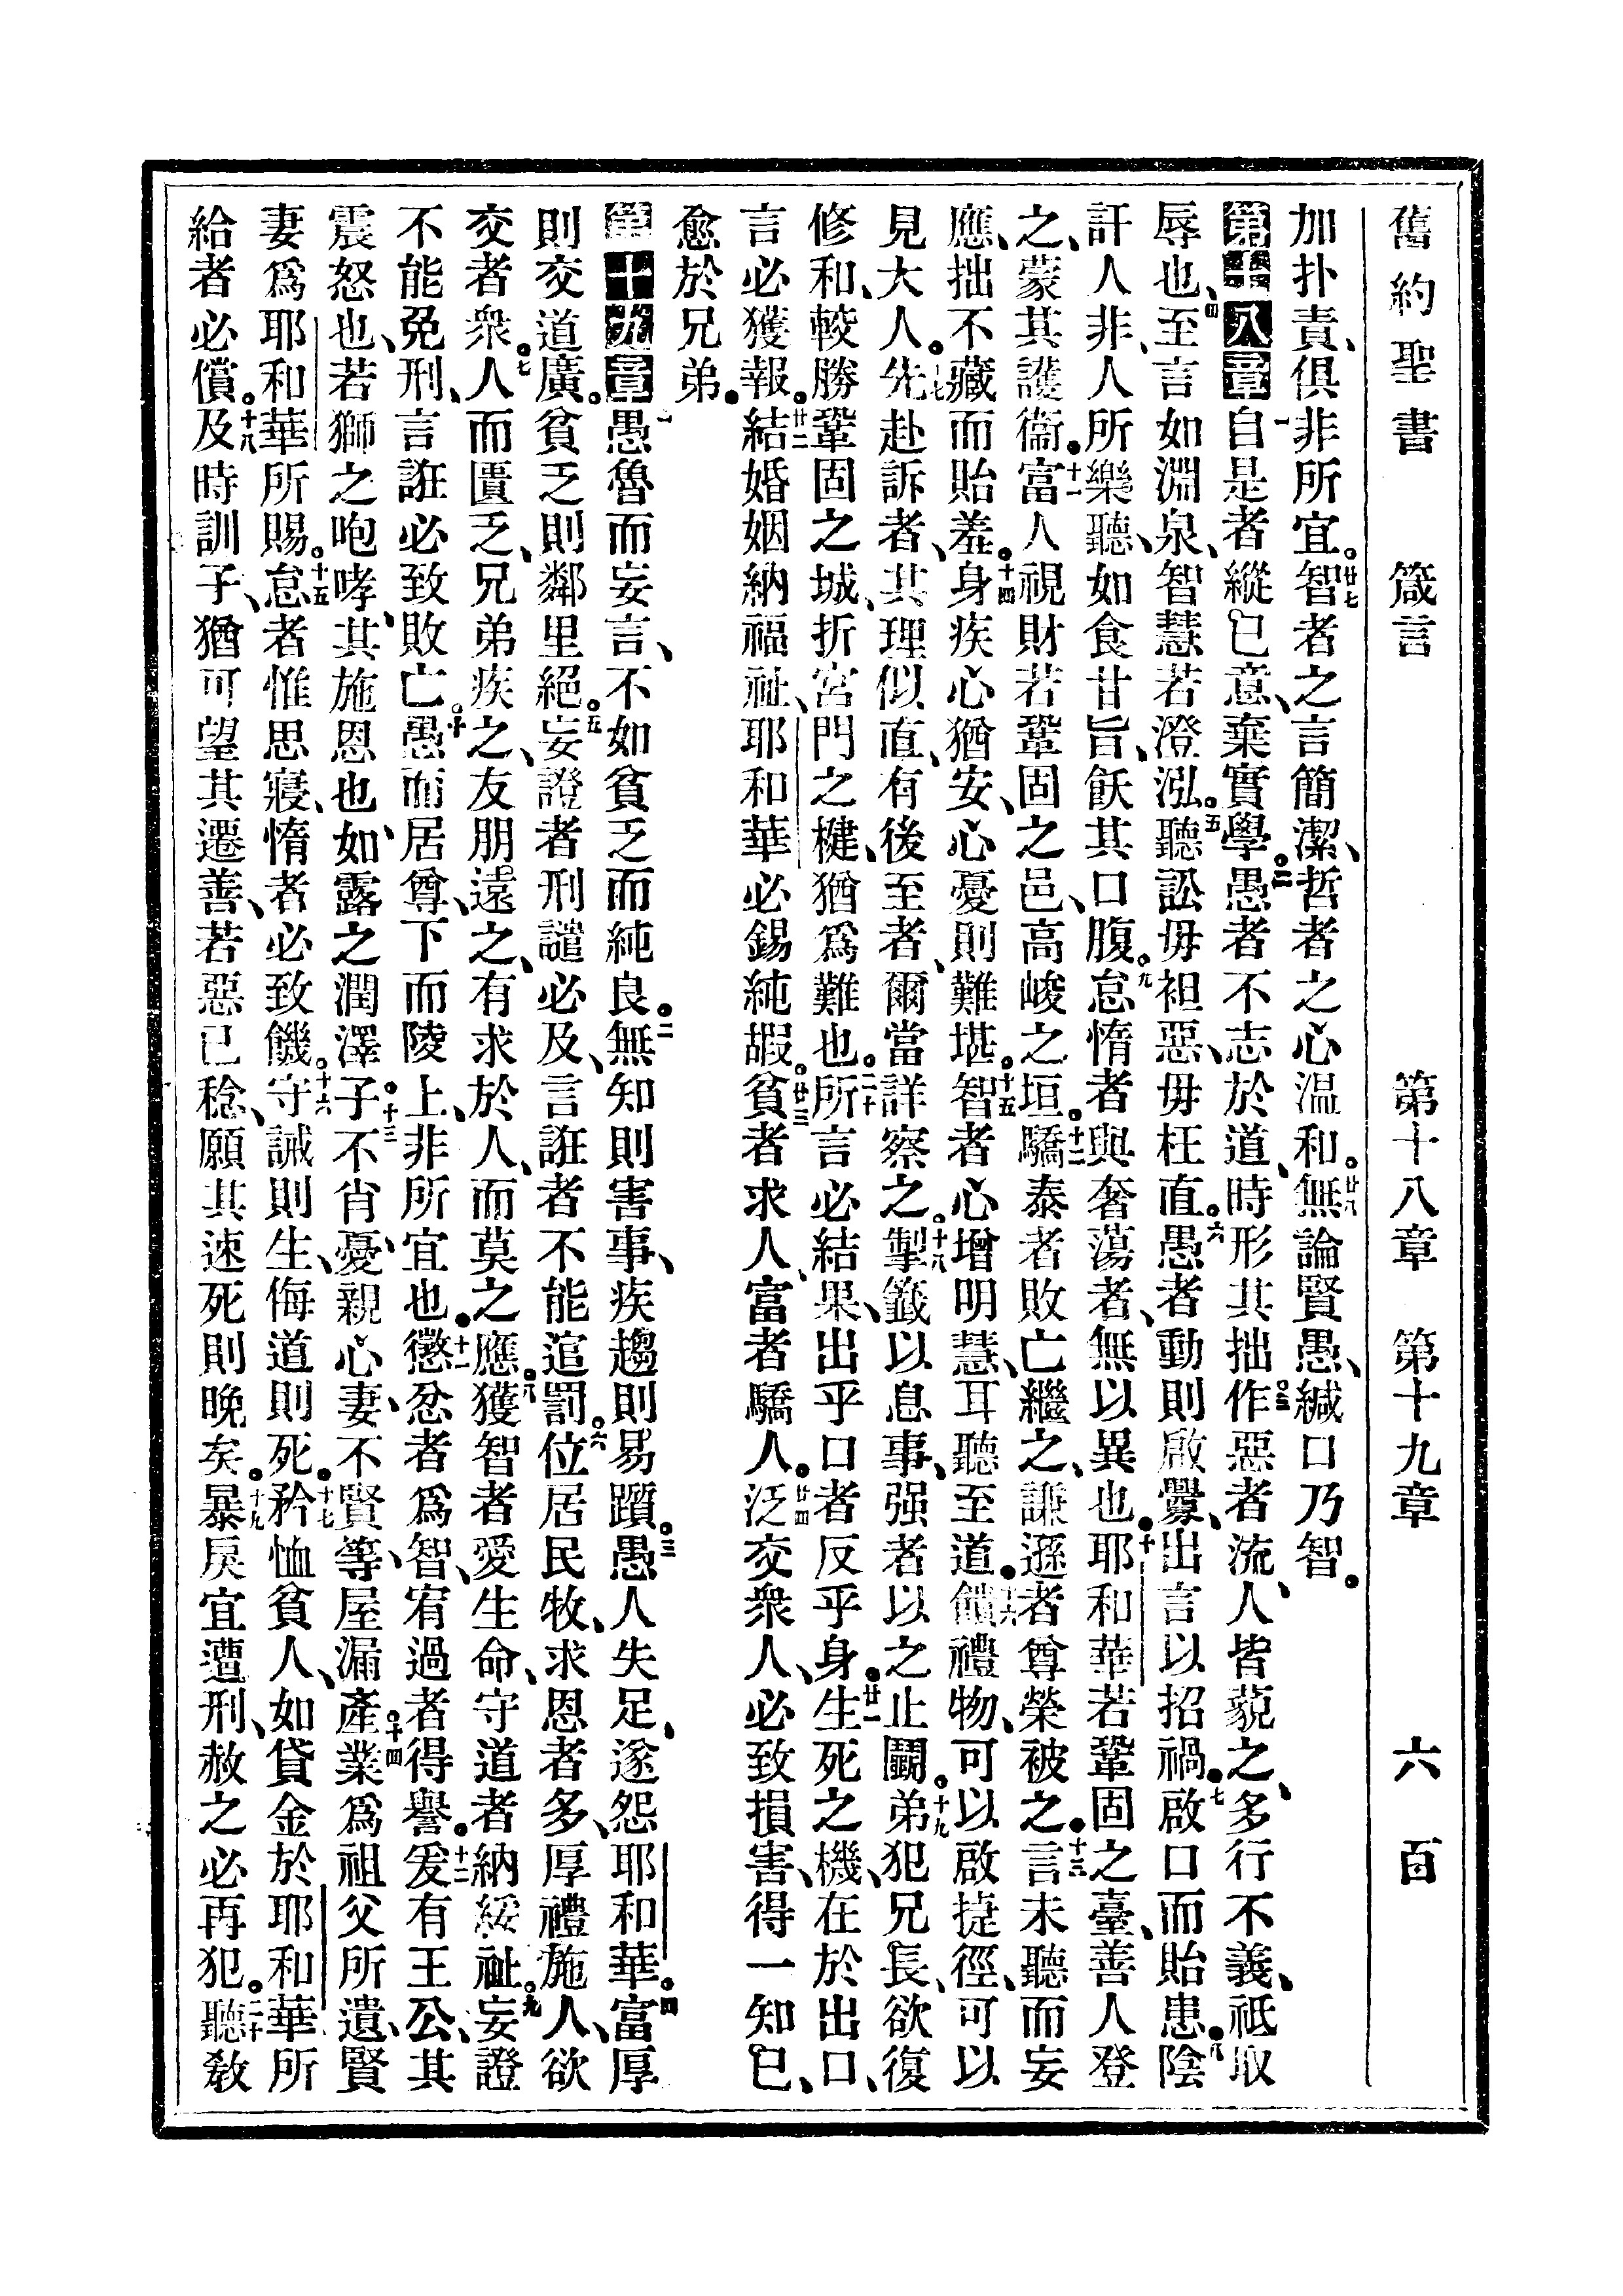 舊約聖書 箴言 第十八章 第十九章 六百
加扑責、俱非所宜。廿七智者之言簡潔、哲者之心溫和。廿八無論賢愚、緘口乃智。
第十八章一自是者縱已意、棄實學。二愚者不志於道、時形其拙作。三惡者流、人皆藐之、多行不義、祗取
辱也、四至言如淵泉、智慧若澄泓。五聽訟毋袒惡、毋枉直。六愚者動則啟釁、出言以招禍。七啟口而貽患。八陰
訐人非、人所樂聽、如食甘旨、飫其口腹。九怠惰者與奢蕩者、無以異也。十耶和華若鞏固之臺、善人登
之、蒙其護衞。十一富人視財若鞏固之邑、高峻之垣。十二驕泰者敗亡繼之、謙遜者尊榮被之。十三言未聽而妄
應、拙不藏而貽羞。十四身疾心猶安、心憂則難堪。十五智者心增明慧、耳聽至道。十六餽禮物、可以啟捷徑、可以
見大人。十七先赴訴者、其理似直、有後至者、爾當詳察之。十八掣籤以息事、强者以之止鬭。十九弟犯兄長、欲復
修和、較勝鞏固之城、折宮門之楗、猶爲難也。二十所言必結果、出乎口者反乎身。廿一生死之機、在於出口、
言必獲報。廿二結婚姻納福祉、耶和華必錫純嘏。廿三貧者求人、富者驕人。廿四泛交衆人、必致損害、得一知已、
愈於兄弟。
第十九章一愚魯而妄言、不如貧乏而純良。二無知則害事、疾趨則易躓。三愚人失足、遂怨耶和華。四富厚
則交道廣。貧乏則鄰里絕。五妄證者刑譴必及、言誑者不能逭罰。六位居民牧、求恩者多、厚禮施人、欲
交者衆。七人而匱乏、兄弟疾之、友朋遠之、有求於人、而莫之應。八獲智者愛生命、守道者納綏祉。九妄證
不能免刑、言誑必致敗亡。十愚而居尊、下而陵上、非所宜也。十一懲忿者爲智、宥過者得譽。十二爰有王公、其
震怒也、若獅之咆哮、其施恩也、如露之潤澤。十三子不肖、憂親心、妻不賢、等屋漏。十四產業爲祖父所遺、賢
妻爲耶和華所賜。十五怠者惟思寢、惰者必致饑。十六守誡則生、侮道則死。十七矜恤貧人、如貸金於耶和華、所
給者必償。十八及時訓子、猶可望其遷善、若惡已稔、願其速死則晚矣。十九暴戾宜遭刑、赦之必再犯。二十聽敎